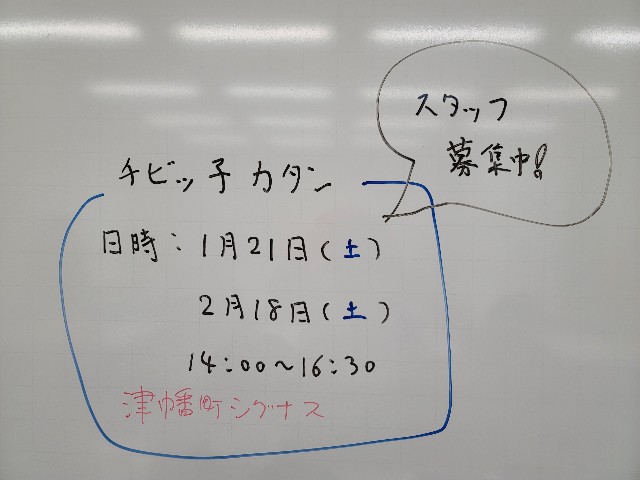 スタッフ
募集中!
チビッ子カタン
日時:1月21日(土)
2月18日(土)
14:00～16:30
津幡町シグナス